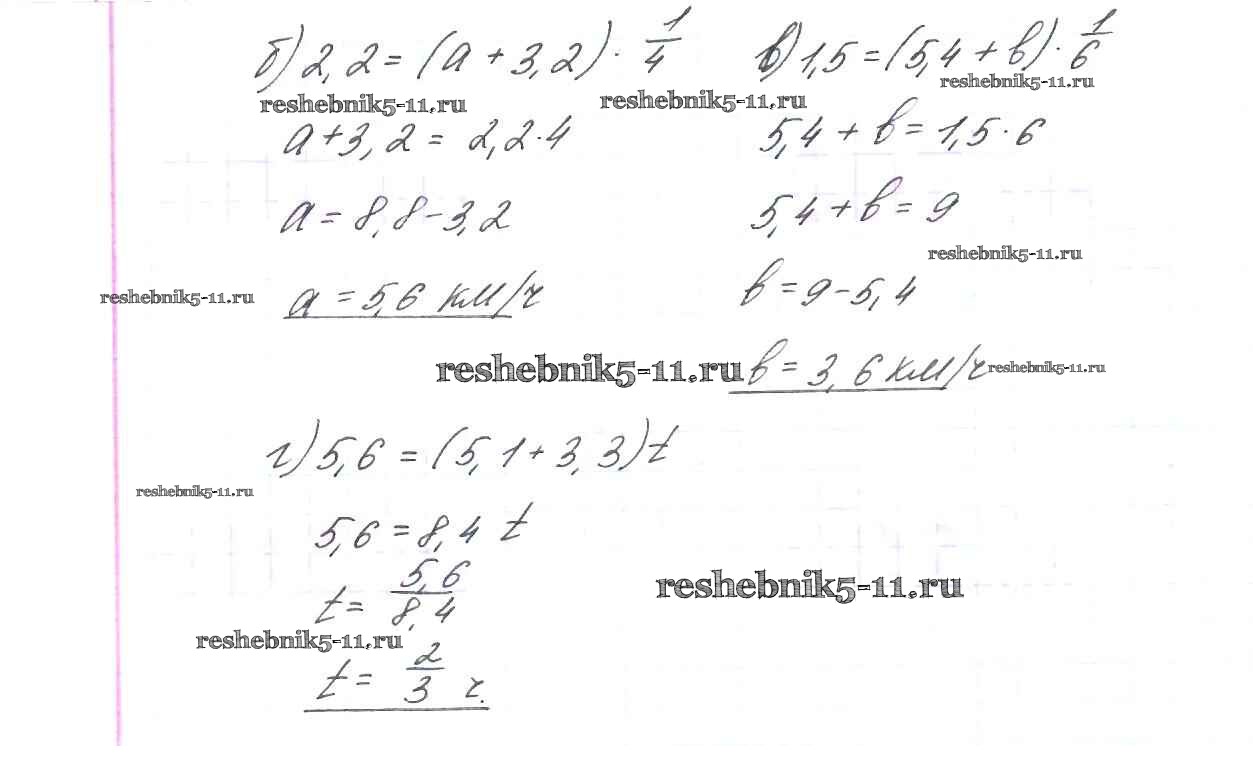 б) 2,2 = (а + 3,2) · 1/4
в) 1,5 = (5,4 + в) · 1/6
reshebnik5-11.ru
reshebnik5-11.ru
reshebnik5-11.ru
а + 3,2 = 2,2 · 4
5,4 + в = 1,5 · 6
а = 8,8 - 3,2
5,4 + в = 9
reshebnik5-11.ru
reshebnik5-11.ru
а = 5,6 км/ч
в = 9 - 5,4
reshebnik5-11.ru
в = 3,6 км/ч
reshebnik5-11.ru
г) 5,6 = (5,1 + 3,3) t
reshebnik5-11.ru
5,6 = 8,4 t
t = 5,6/8,4
reshebnik5-11.ru
reshebnik5-11.ru
t = 2/3 ч.